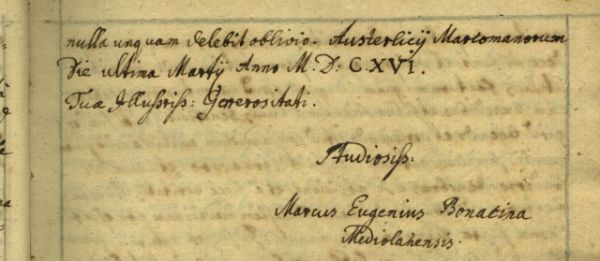 nulla unquam delebit oblivio. Austerlicij Marcomanorum
Die ultima Martij Anno M: D: CXVI.
Tuæ Illustriss: Generositati.
Studiosiss:
Marcus Eugenius Bonacina
Mediolanensis.